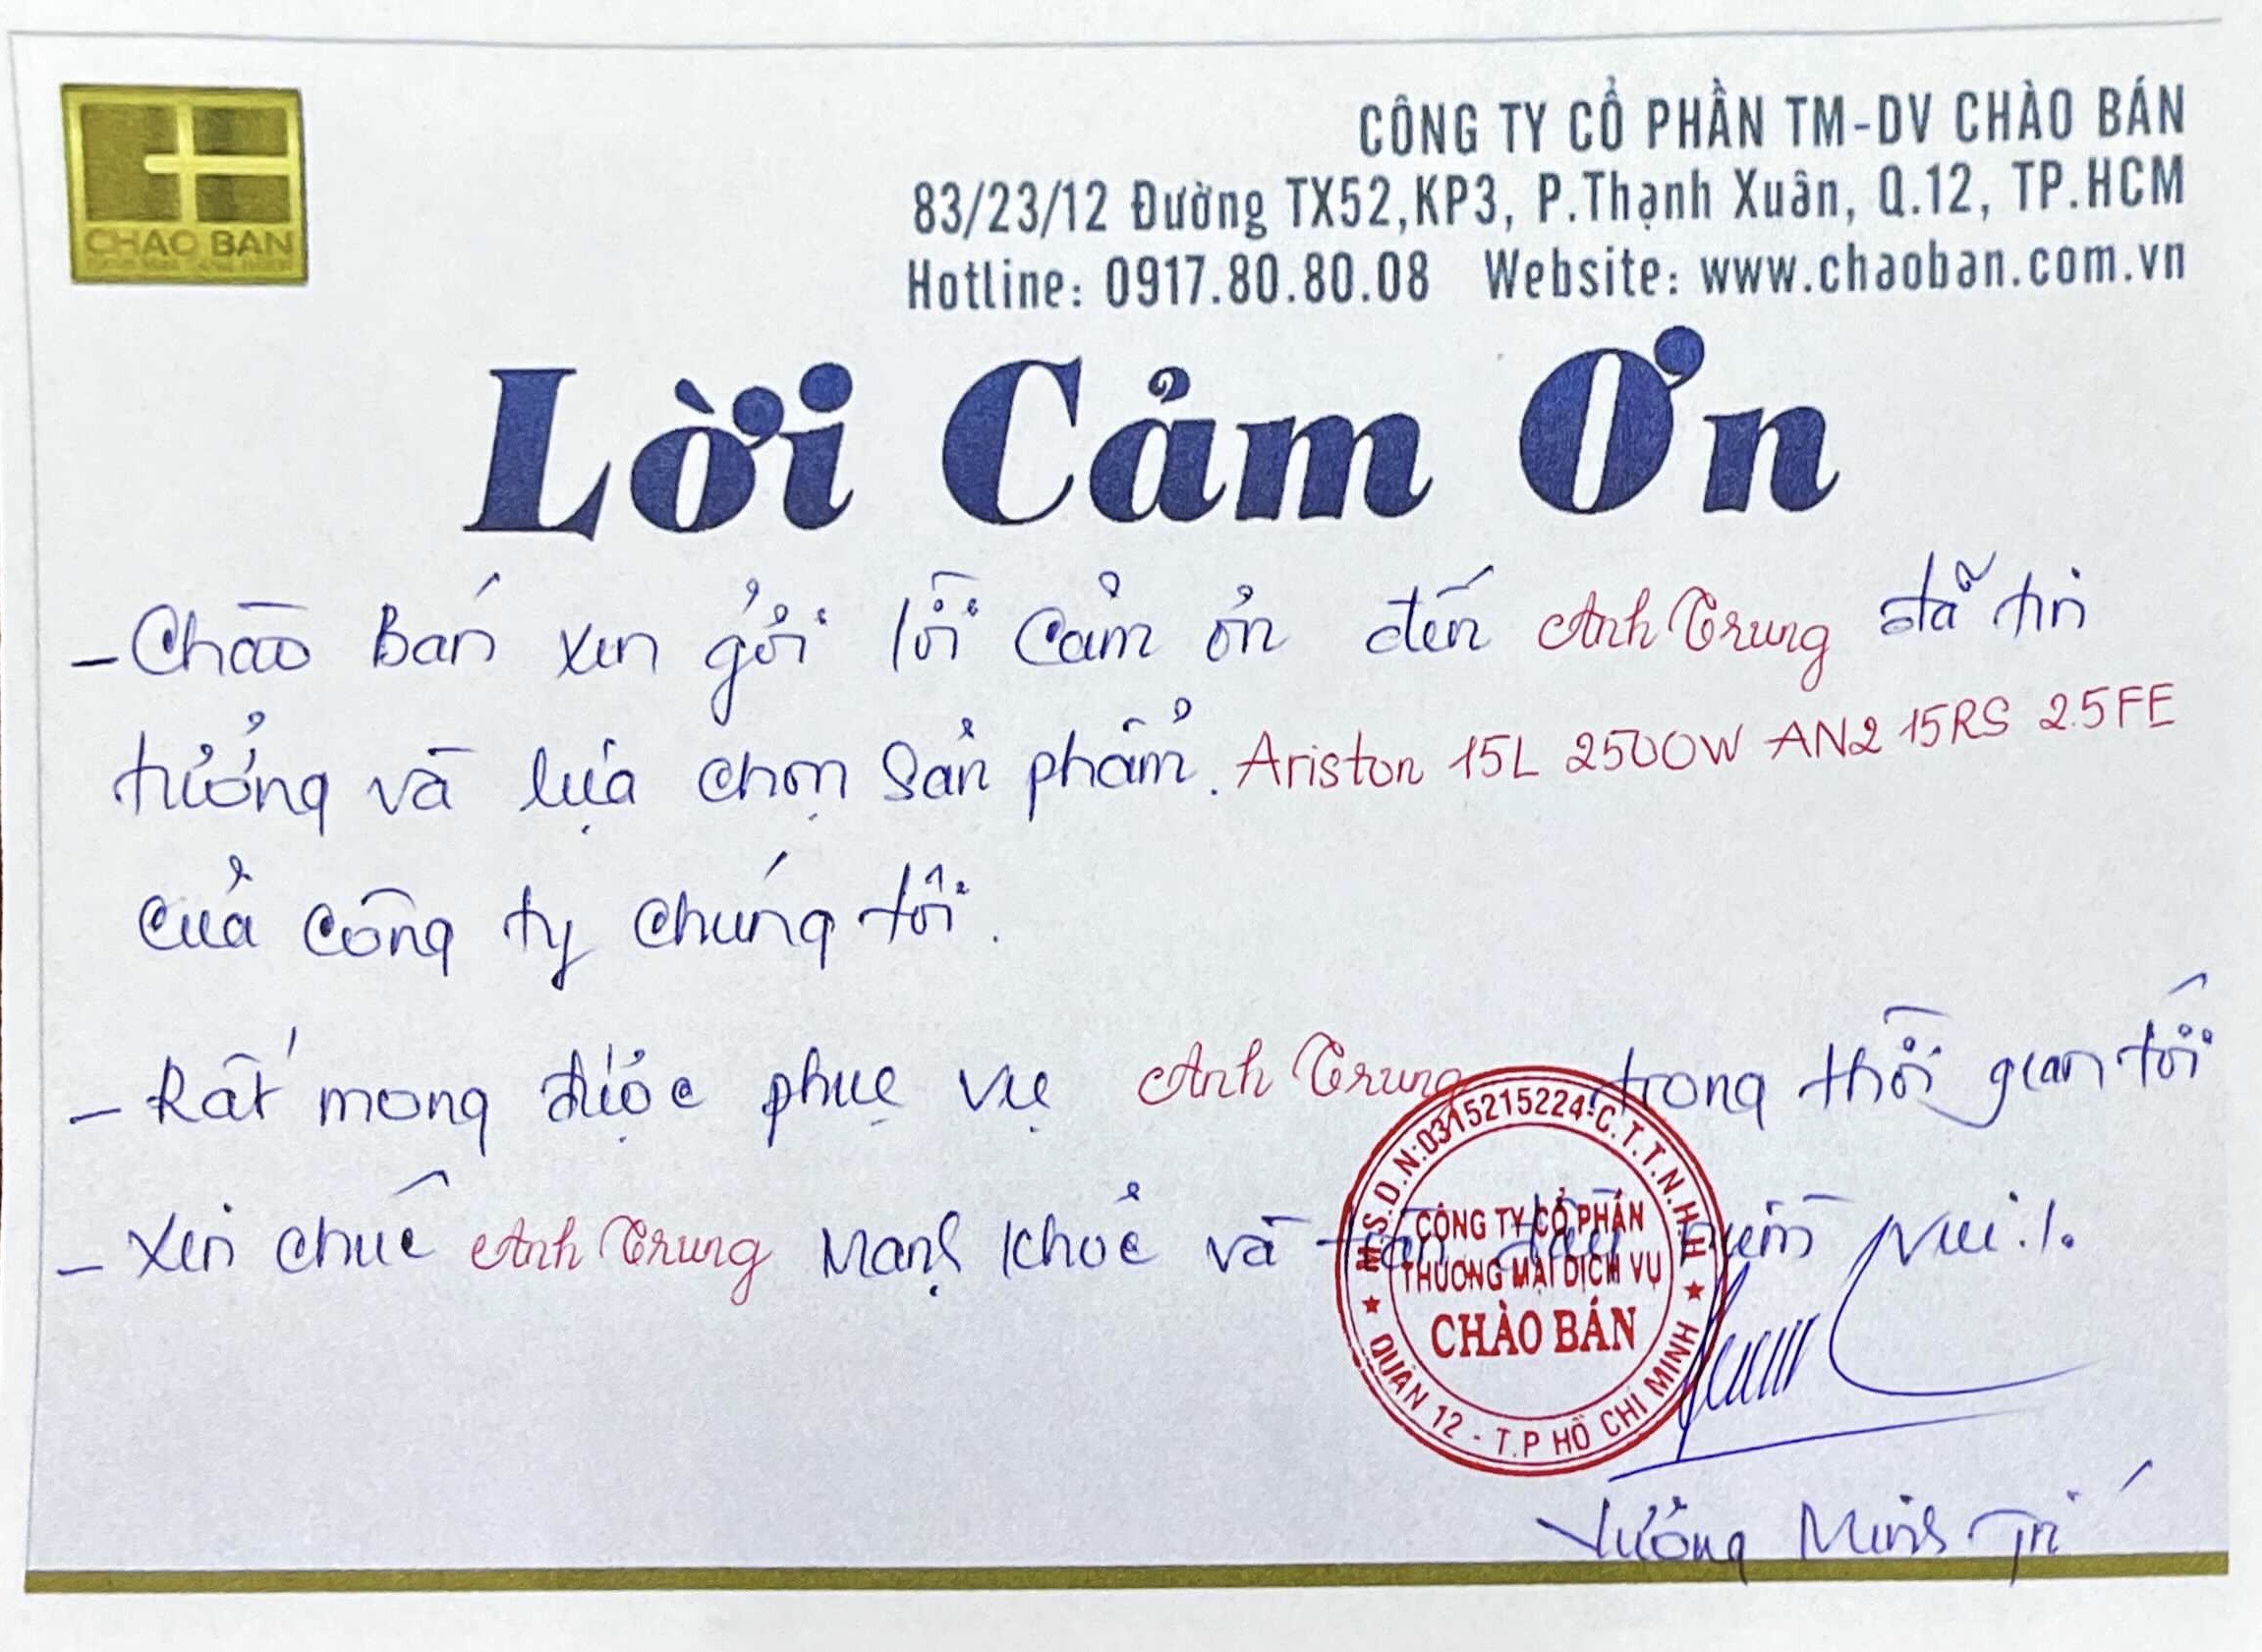 CHAO BAN
CÔNG TY CỔ PHẦN TM-DV CHÀO BÁN
83/23/12 Đường TX52,KP3, P.Thạnh Xuân, Q.12, TP.HCM
Hotline: 0917.80.80.08 Website: www.chaoban.com.vn
Lời Cảm Ơn
- Chào Bán xin gởi lời cảm ơn đến Anh Trung đã tin
tưởng và lựa chọn sản phẩm. Ariston 15L 2500W AN2 15RS 2.5FE
của công ty chúng tôi.
- Rất mong được phục vụ Anh Trung trong thời gian tới
- Xin chúc Anh Trung mạnh khoẻ và tràn đầy niềm vui./.
M.S.D.N:0315215224-C.T.T.N.H.H
CÔNG TY CỔ PHẦN
THƯƠNG MẠI DỊCH VỤ
CHÀO BÁN
QUẬN 12 - T.P HỒ CHÍ MINH
Vương Minh Trí